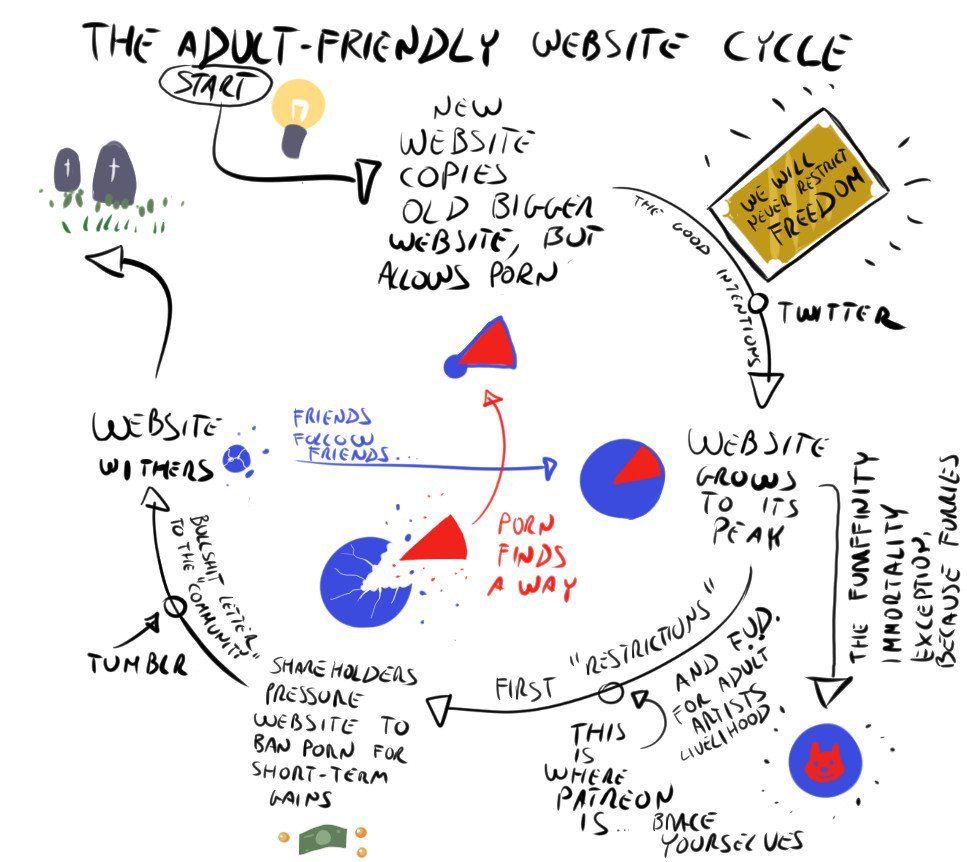 THE ADULT-FRIENDLY WEBSITE CYCLE
START
NEW
WEBSITE
COPIES
OLD BIGGER
WEBSITE, BUT
ALLOWS PORN
THE GOOD INTENTIONS
WE WILL
NEVER RESTRICT
FREEDOM
TWITTER
WEBSITE
GROWS
TO ITS
PEAK
THE FURAFFINITY
IMMORTALITY
EXCEPTION,
BECAUSE FURRIES
FIRST "RESTRICTIONS"
AND FUD.
FOR ADULT
ARTISTS
LIVELIHOOD.
THIS
IS
WHERE
PATREON
IS... BRACE
YOURSELVES
SHAREHOLDERS
PRESSURE
WEBSITE TO
BAN PORN FOR
SHORT-TERM
GAINS
BULLSHIT LETTER
TO THE "COMMUNITY"
TUMBLR
WEBSITE
WITHERS
FRIENDS
FOLLOW
FRIENDS...
PORN
FINDS
A WAY